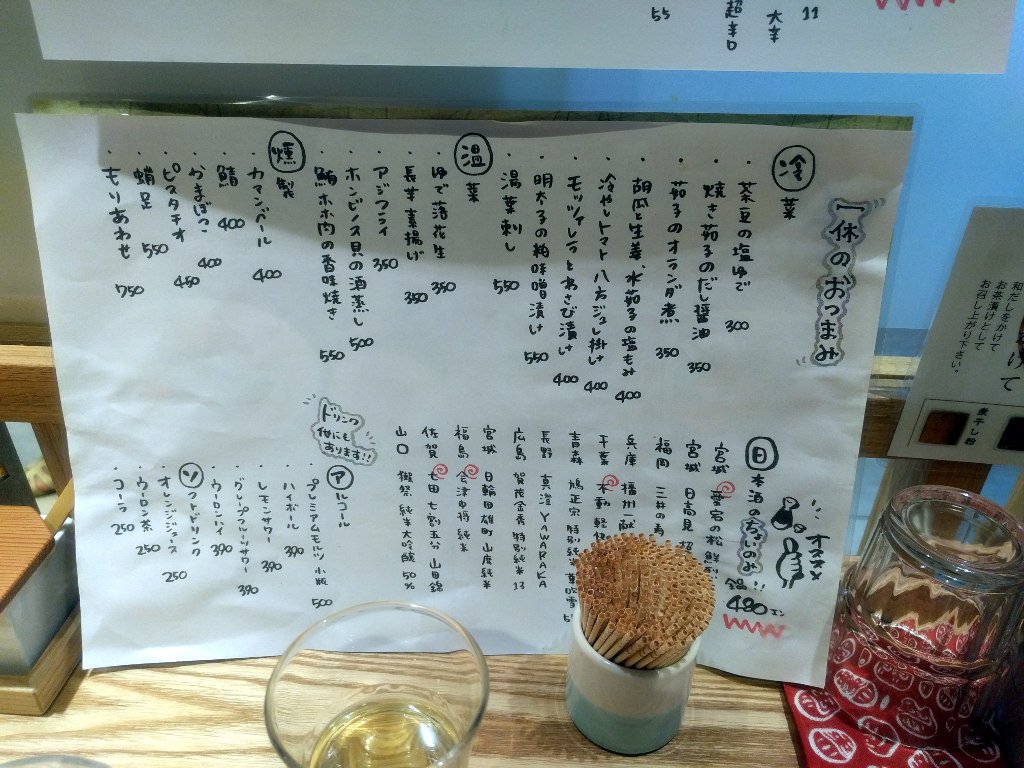 55
超辛口
大辛
11
一休のおつまみ
冷菜
・茶豆の塩ゆで 300
・焼き茄子のだし醤油 350
・茄子のオランダ煮 350
・胡瓜と生姜、水茄子の塩もみ 400
・冷やしトマト 八方ジュレ掛け 400
・モッツァレラとわさび漬け 400
・明太子の粕味噌漬け 550
・湯葉刺し 550
温菜
・ゆで落花生 350
・長芋素揚げ 350
・アジフライ 350
・ホンビノス貝の酒蒸し 500
・鮪ホホ肉の香味焼き 550
燻製
・カマンベール 400
・鯖 400
・かまぼこ 400
・ピスタチオ 450
・蛸足 550
・もりあわせ 750
日本酒のちょいのみ!!
オススメ
全品 480エン
宮城 愛宕の松 鮮
宮城 日高見 超
福岡 三井の寿
兵庫 播州一献
千葉 不動
青森 鳩正宗 特別純米 華吹雪
長野 真澄 YAWARAKA
広島 賀茂金秀 特別純米 13
宮城 日輪田 雄町 山廃純米
福島 会津中将 純米
佐賀 七田 七割五分 山田錦
山口 獺祭 純米大吟醸 50%
ドリンク
他にも
あります!!
アルコール
・プレミアムモルツ 小瓶 500
・ハイボール 390
・レモンサワー 390
・グレープフルーツサワー 390
・ウーロンハイ 390
ソフトドリンク
・オレンジジュース 250
・ウーロン茶 250
・コーラ 250
和だしをかけて
お茶漬けとして
お召し上がり下さい。
けて
煮干し粉